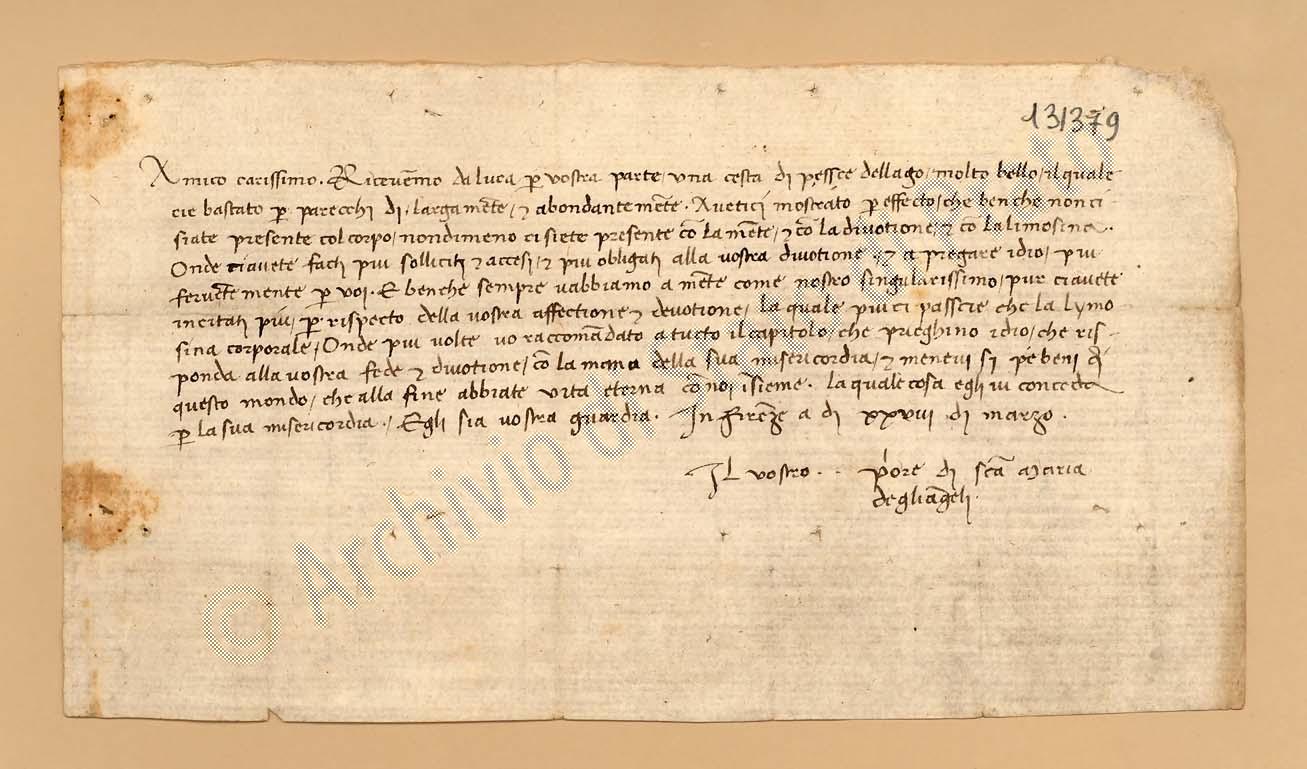 131379
Amico carissimo. Ricevemo da luca p vostra parte / una cesta di pessce dellago / molto bello / il quale
cie bastato p parecchi di / largamēte / ⁊ abondantemēte. Aveteci mostrato p effecto / che benche non ci
siate presente col corpo / nondimeno ci siete presente cō la mēte / ⁊ cō la divotione / ⁊ cō la limosina.
Onde ciavete facti piu solliciti ⁊ accesi / ⁊ piu obligati alla vostra divotione / ⁊ a pregare idio / piu
fervētemente p voi. E benche sempre vabbiamo a mēte come nostro singularissimo / pur ciavete
incitati piu / p rispecto della vostra affectione ⁊ devotione / la quale piu ci passcie che la lymo
sina corporale / Onde piu volte vo raccomādato a tucto il capitolo / che prieghino idio / che ris
ponda alla vostra fede ⁊ divotione / cō la mano della sua misericordia / ⁊ menevi si pe beni di
questo mondo / che alla fine abbiate vita eterna cō noi īsieme. la quale cosa egli vi conceda
p la sua misericordia / Egli sia vostra guardia. In firēze a di xxviii di marzo.
Il vostro . . pore di scā Maria
degliāgeli.
© Archivio di Stato